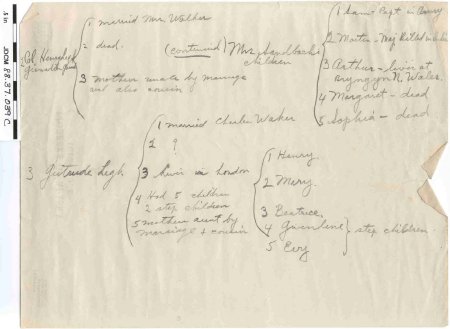 1 married Mrs. Walker
2 dead.
(continued) Mrs Sandbach's
children
3 mothers uncle by marriage
and also cousin
1 Sam'l Capt in
2 Martin - Maj Killed in
3 Arthur - livin at
Bryngyn N. Wales.
4 Margaret - dead
5 Sophia - dead
2 Col.
3 Gertrude Legh
1 married Charles Walker
2 ?
3 livin in London
4 Had 5 children
2 step children
5 mothers aunt by
marriage & cousin
1 Henry
2 Mary.
3 Beatrice,
4 Gwendline
5 Evy
step children.
5 in
JODM 88.37.039 C